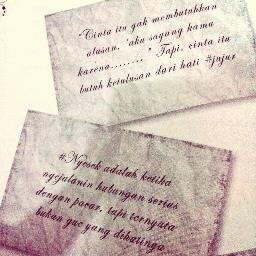 "Cinta itu gak membutuhkan
alasan, 'aku sayang kamu
karena........' " Tapi, cinta itu
butuh ketulusan dari hati #jujur
#Nyesek adalah ketika
ngejalanin hubungan serius
dengan pacar, tapi ternyata
bukan gue yang dihatinya